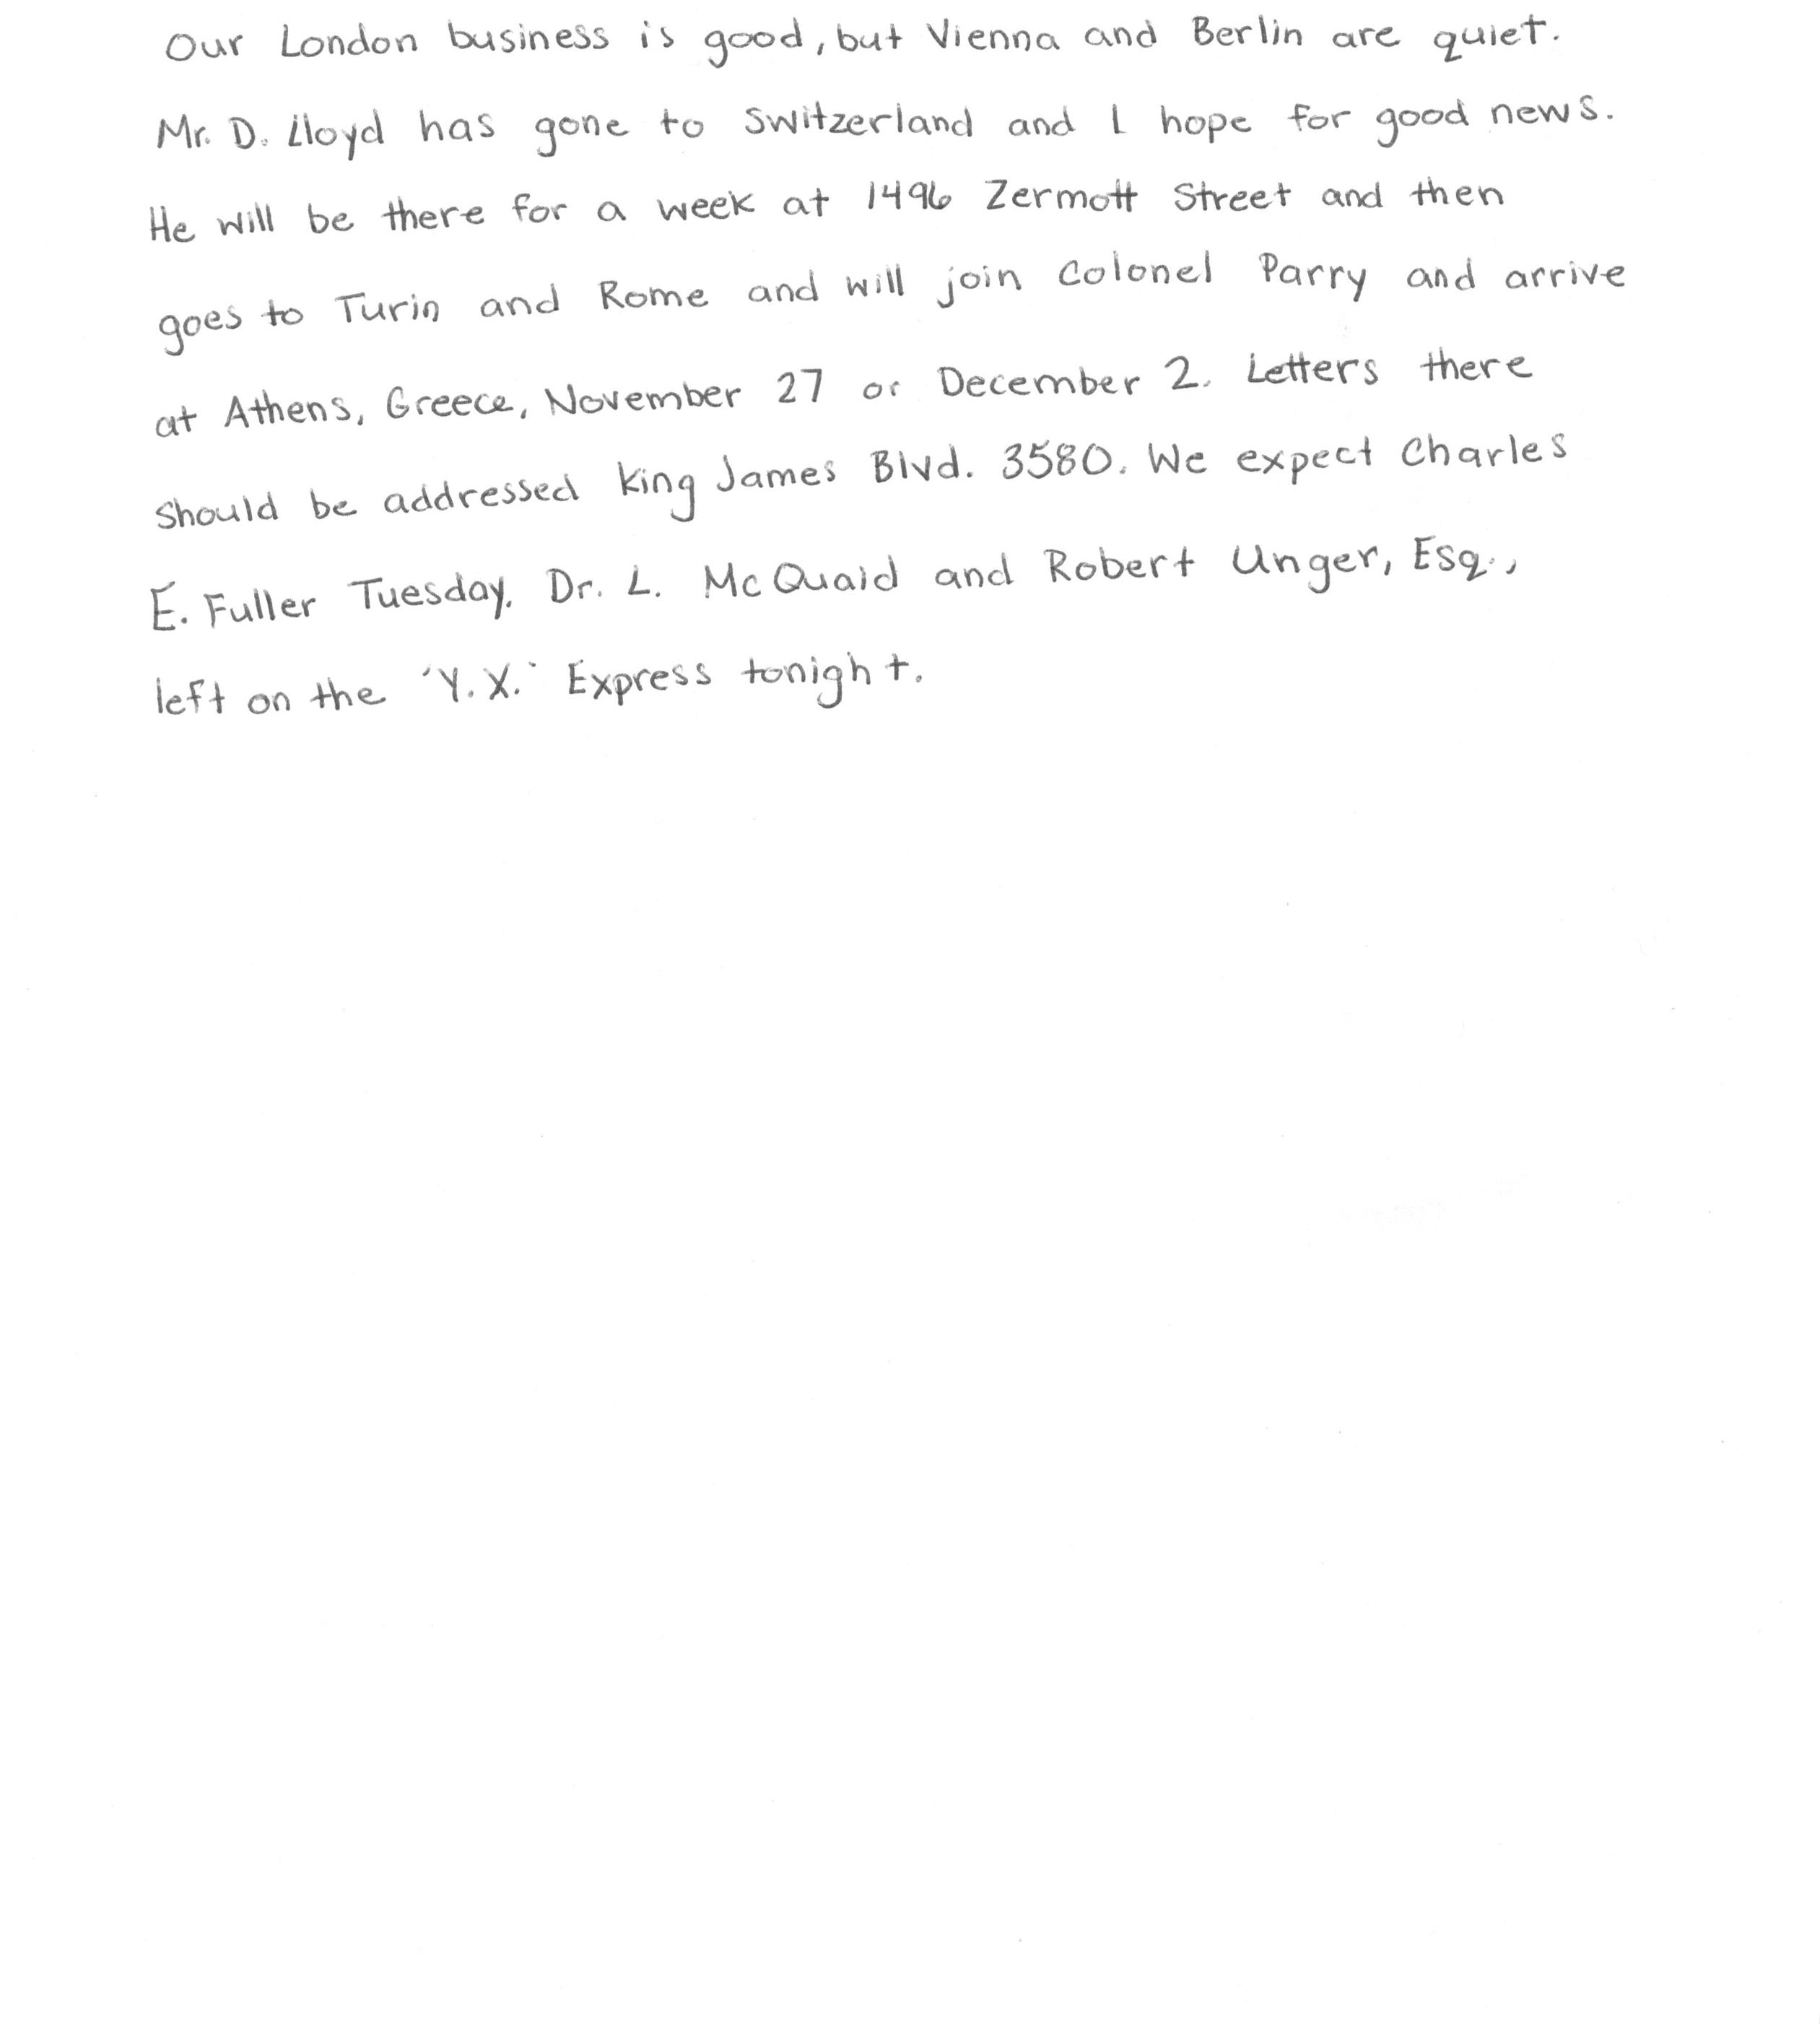 Our London business is good, but Vienna and Berlin are quiet.
Mr. D. Lloyd has gone to Switzerland and I hope for good news.
He will be there for a week at 1496 Zermott Street and then
goes to Turin and Rome and will join Colonel Parry and arrive
at Athens, Greece, November 27 or December 2. Letters there
should be addressed King James Blvd. 3580. We expect Charles
E. Fuller Tuesday. Dr. L. McQuaid and Robert Unger, Esq.,
left on the 'Y.X.' Express tonight.